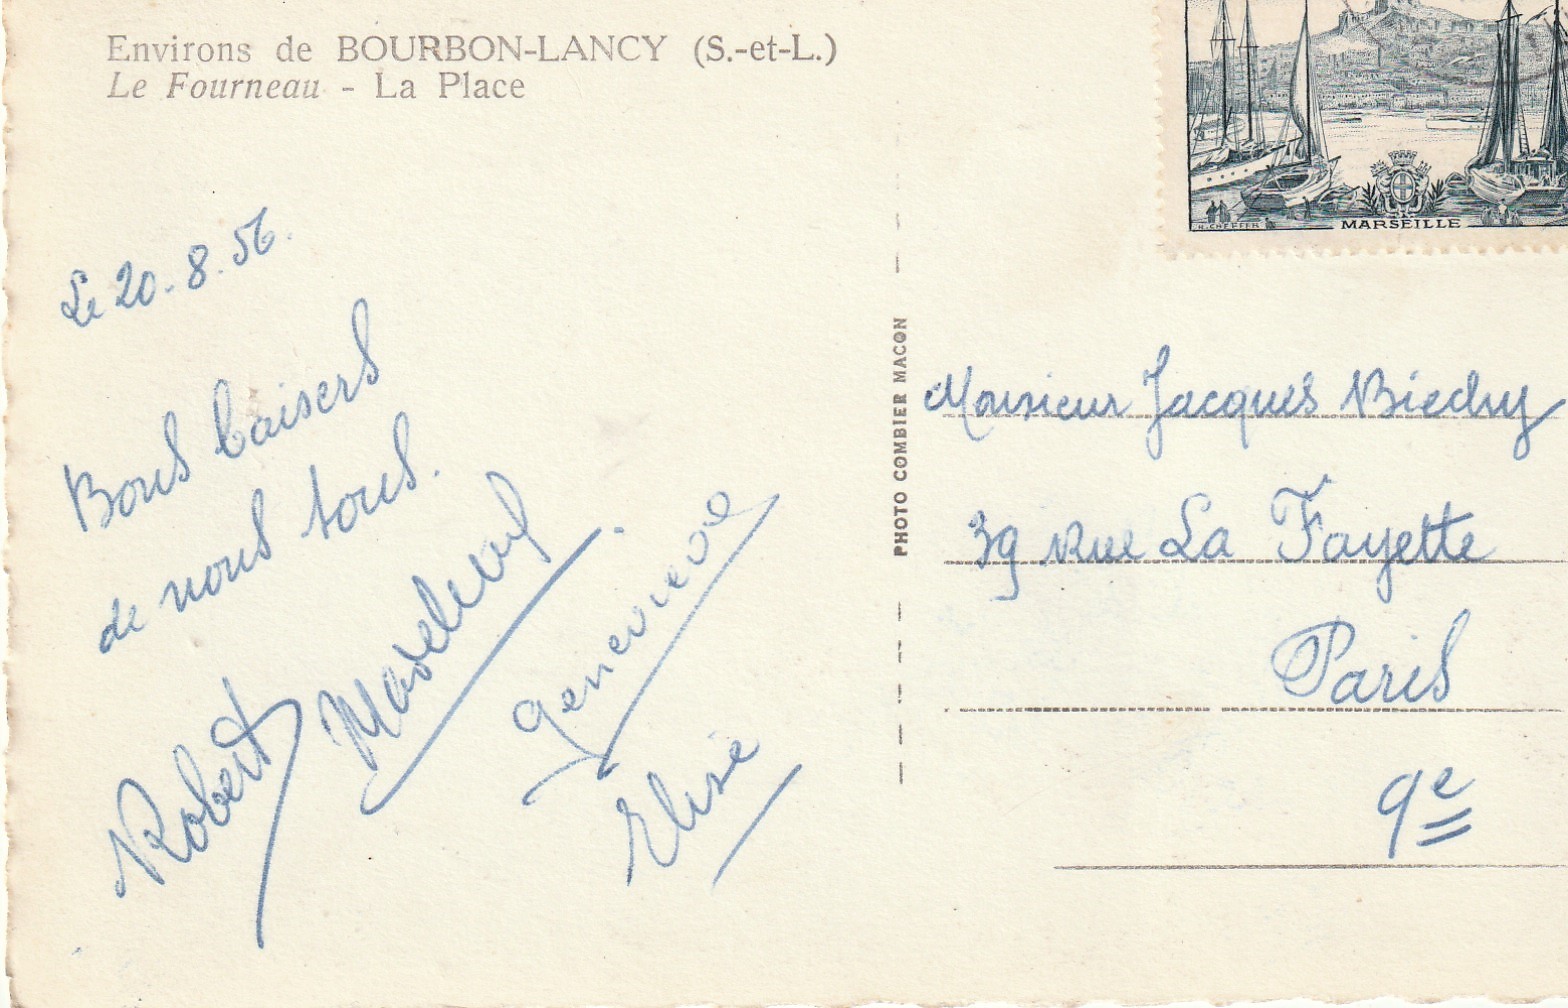 Environs de BOURBON-LANCY (S.-et-L.)
Le Fourneau - La Place
Le 20.8.56.
Bons baisers
de nous tous.
Robert
Madeleine
Geneviève
Elise
PHOTO COMBIER MACON
H. CHEFFER
MARSEILLE
Monsieur Jacques Biechy
39 Rue La Fayette
Paris
9e